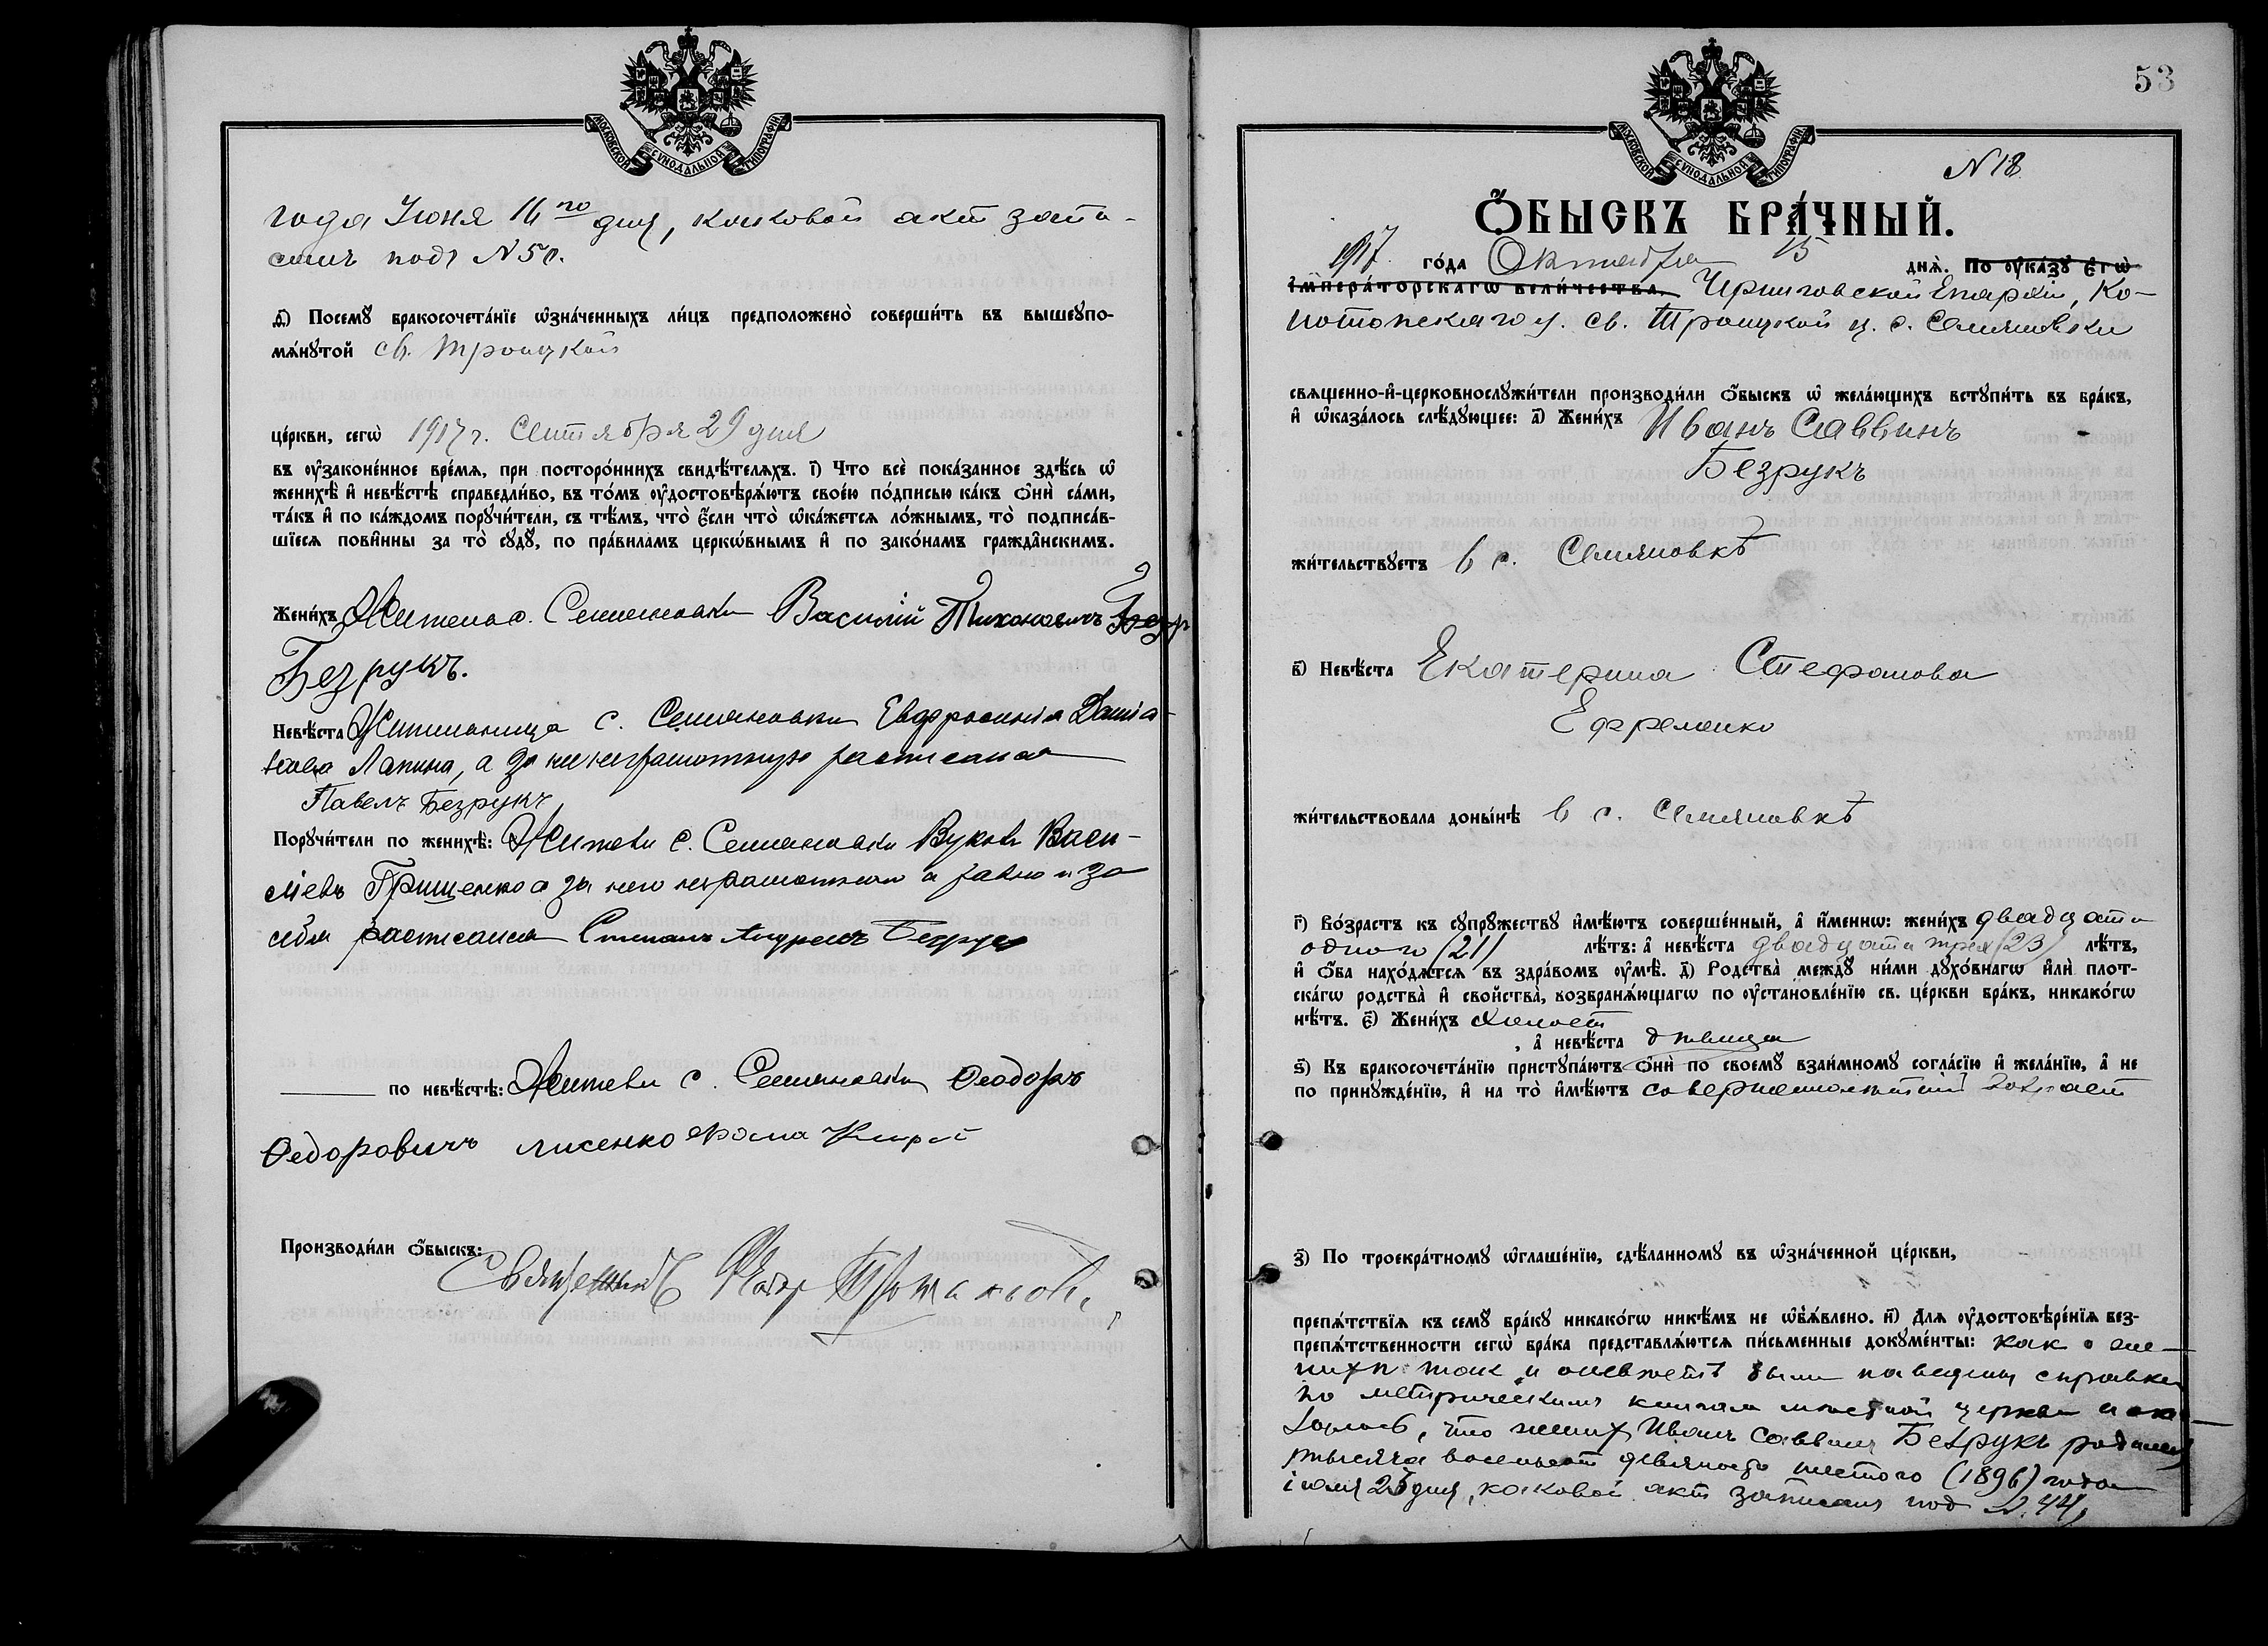 МОСКОВСКОЙ СѴНОДАЛЬНОЙ ТИПОГРАФІИ
года Іюня 16го дня, каковой актъ запи-
санъ подъ N 50.
д҃і) Посемꙋ̀ бракосочета́нїе ѡ҆зна́ченныхъ ли́цъ предположено̀ соверши́ть въ вышеꙋпо-
мѧ́нꙋтой св. Троицкой
це́ркви, сегѡ̀ 1917 г. Сентября 29 дня
въ ᲂу҆законе́нное вре́мѧ, при посторо́ннихъ свидѣ́телѧхъ. і҃) Что всѐ пока́занное здѣ́сь ѡ҆
женихѣ̀ и҆ невѣ́стѣ справедли́во, въ то́мъ ᲂу҆достовѣрѧ́ютъ свое́ю по́дписью ка́къ ѻ҆нѝ са́ми,
та́къ и҆ по ка́ждомъ порꙋчи́тели, съ тѣ́мъ, что̀ є҆́сли что̀ ѡ҆ка́жетсѧ ло́жнымъ, то̀ подписа́в-
шїесѧ пови́нны за то̀ сꙋдꙋ̀, по пра́виламъ церкѡ́внымъ и҆ по зако́намъ гражда́нскимъ.
Жени́хъ Житель с. Семяновки Василій Тихоновичъ Безр
Безрукъ.
Невѣ́ста Жительница с. Семяновки Евфросинія Даніи-
лова Лапина, а за нее неграмотную росписался
Павелъ Безрукъ
Порꙋчи́тели по женихѣ̀: Жители с. Семяновки Васи-
ліевъ Грищенко а за него неграмотнаго а равно и за
себя росписался Степанъ Андреевъ Безрукъ
по невѣ́стѣ: Жители с. Семяновки Ѳеодоръ
Ѳедоровичъ Лисенко Фома
Производи́ли ѻ҆́быскъ: Священникъ Петр
53
МОСКОВСКОЙ СѴНОДАЛЬНОЙ ТИПОГРАФІИ
N 18
Ѻ҆́БЫСКЪ БРА́ЧНЫЙ.
1917 го́да Октября 15 днѧ̀. По ᲂу҆ка́зꙋ є҆гѡ̀
і҆мпера́торскагѡ вели́чества, Черниговской Епархіи, Ко-
нотопскаго у. св. Троицкой ц. с. Семяновки
свѧще́нно-и҆-церковнослꙋжи́тели производи́ли ѻ҆́быскъ ѡ҆ жела́ющихъ встꙋпи́ть въ бра́къ,
и҆ ѡ҆каза́лось слѣ́дꙋющее: а҃) Жени́хъ Иванъ Саввинъ
Безрукъ
жи́тельствꙋетъ в с. Семяновкѣ
в҃) Невѣ́ста Екатерина Стефанова
Ефременко
жи́тельствовала доны́нѣ в с. Семяновкѣ
г҃) Во́зрастъ къ сꙋпрꙋ́жествꙋ и҆мѣ́ютъ соверше́нный, а҆ и҆́менню: жени́хъ двадцати
одного (21) лѣ́тъ: а҆ невѣ́ста двадцати трех (23) лѣ́тъ,
и҆ ѻ҆́ба нахо́дѧтсѧ въ здра́вомъ ᲂу҆мѣ̀. д҃) Родства̀ междꙋ̀ ни́ми дꙋхо́внагѡ и҆лѝ плот-
ска́гѡ родства̀ и҆ сво́йства̀, возбранѧ́ющагѡ по ᲂу҆становле́нїю св. це́ркви бра́къ, никако́гѡ
нѣ́тъ. є҃) Жени́хъ холост
, а҆ невѣ́ста дѣвица
ѕ҃) Къ бракосочета́нїю пристꙋпа́ютъ ѻ҆нѝ по своемꙋ̀ взаи́мномꙋ согла́сїю и҆ жела́нїю, а҆ не
по принꙋжде́нїю, и҆ на то̀ и҆мѣ́ютъ совершеннолѣтній возраст
з҃) По троекра́тномꙋ ѡ҆глаше́нїю, сдѣ́ланномꙋ въ ѡ҆зна́ченной це́ркви,
препѧ́тствїѧ къ семꙋ̀ бра́кꙋ никако́гѡ никѣ́мъ не ѡ҆б̾ѧ́влено. и҃) Длѧ ᲂу҆достовѣре́нїѧ без-
препѧ́тственности сегѡ̀ бра́ка представлѧ́ютсѧ пи́сьменные докꙋме́нты: как о же-
нихѣ так и о невѣстѣ были наведены справки
по метрическимъ книгам мѣстной церкви и ока-
залось, что жених Иванъ Саввинъ Безрукъ родился
тысяча восемьсот девяносто шестого (1896) года
іюля 25 дня, каковой акт записанъ под N. 44,